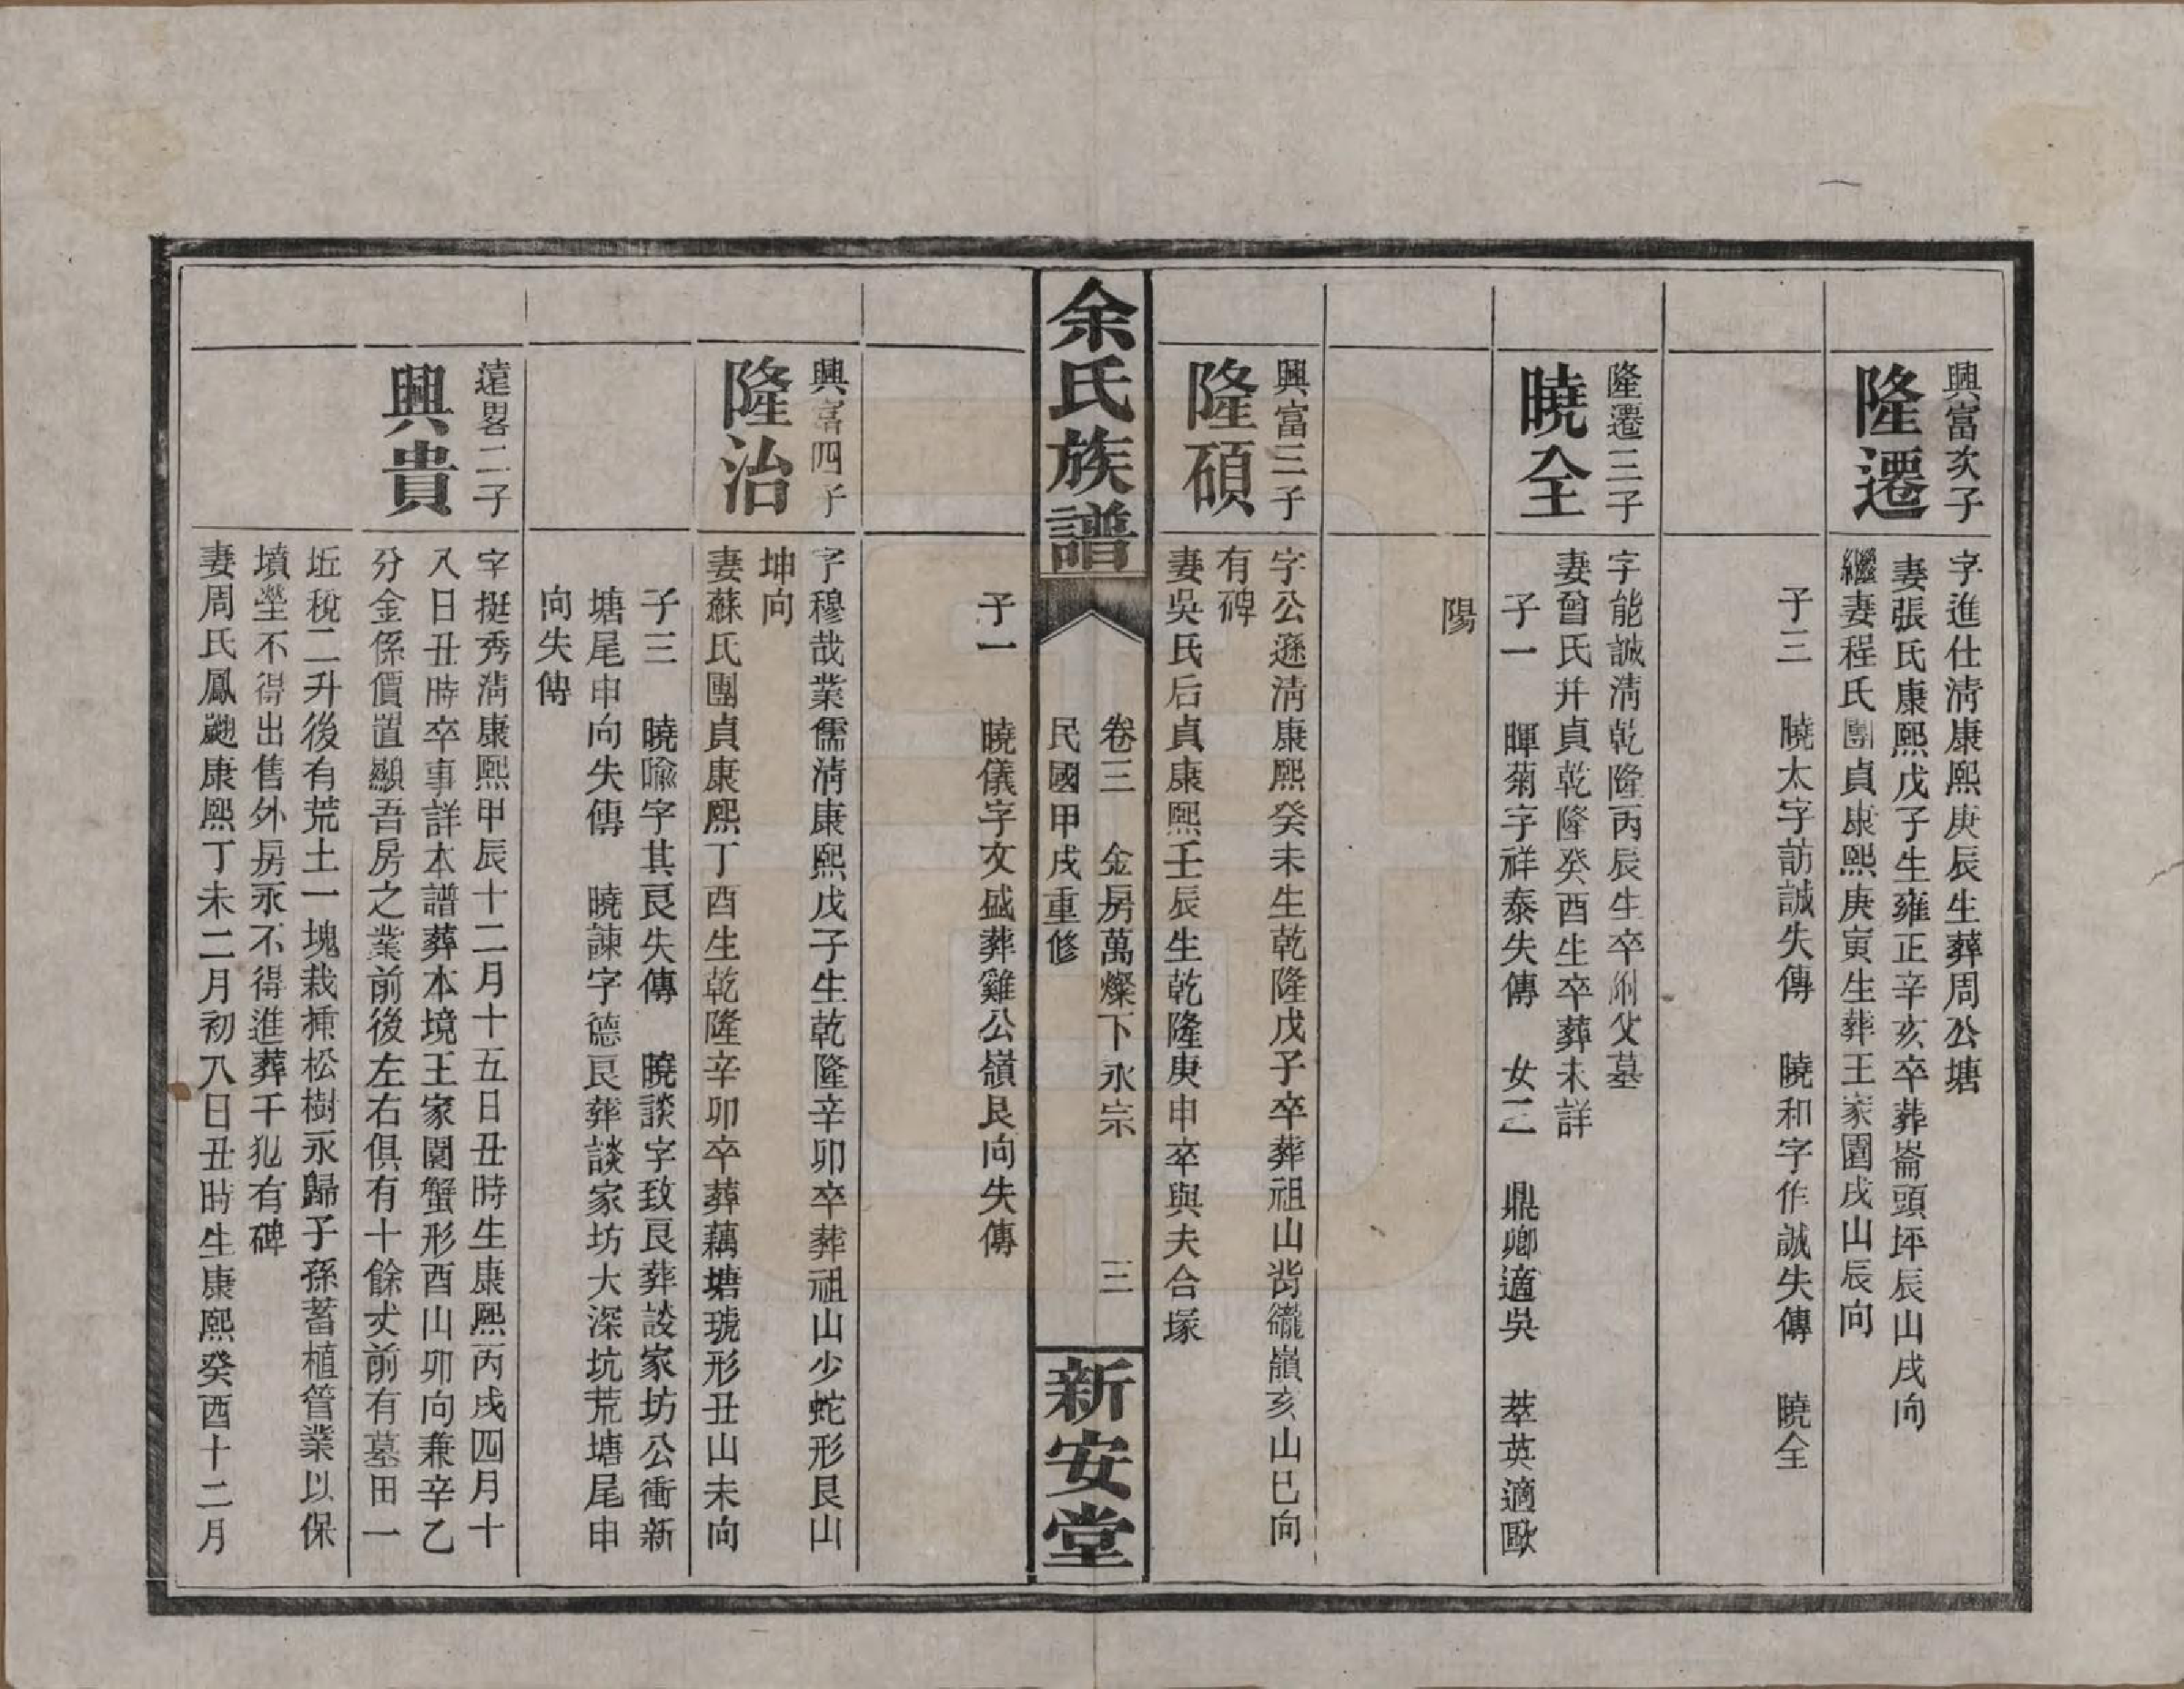 興富次子
隆遷
字進仕淸康熙庚辰生葬周公塘
妻張氏康熙戊子生雍正辛亥卒葬崙頭坪辰山戌向
繼妻程氏團貞康熙庚寅生葬王家園戌山辰向
子三　曉太字訪誠失傳　曉和字作誠失傳　曉全
隆遷三子
曉全
字能誠淸乾隆丙辰生卒附父墓
妻曾氏幷貞乾隆癸酉生卒葬未詳
子一　暉菊字祥泰失傳　女二　鼎卿適吳　萃英適歐
陽
興富三子
隆碩
字公遜淸康熙癸未生乾隆戊子卒葬祖山嶺亥山巳向
有碑
妻吳氏后貞康熙壬辰生乾隆庚申卒與夫合塚
余氏族譜
卷三　金房萬燦下永宗　三
民國甲戌重修
新安堂
子一　曉儀字文盛葬雞公嶺艮向失傳
興富四子
隆治
字穆哉業儒淸康熙戊子生乾隆辛卯卒葬祖山少蛇形艮山
坤向
妻蘇氏團貞康熙丁酉生乾隆辛卯卒葬藕塘琥形丑山未向
子三　曉喩字其艮失傳　曉談字致艮葬談家坊公衝新
塘尾申向失傳　曉諫字德艮葬談家坊大深坑荒塘尾申
向失傳
遠畧二子
興貴
字挺秀淸康熙甲辰十二月十五日丑時生康熙丙戌四月十
八日丑時卒事詳本譜葬本境王家園蟹形酉山卯向兼辛乙
分金係價置顯吾房之業前後左右俱有十餘丈前有墓田一
坵稅二升後有荒土一塊栽揷松樹永歸子孫蓄植管業以保
墳塋不得出售外房永不得進葬千犯有碑
妻周氏鳳康熙丁未二月初八日丑時生康熙癸酉十二月